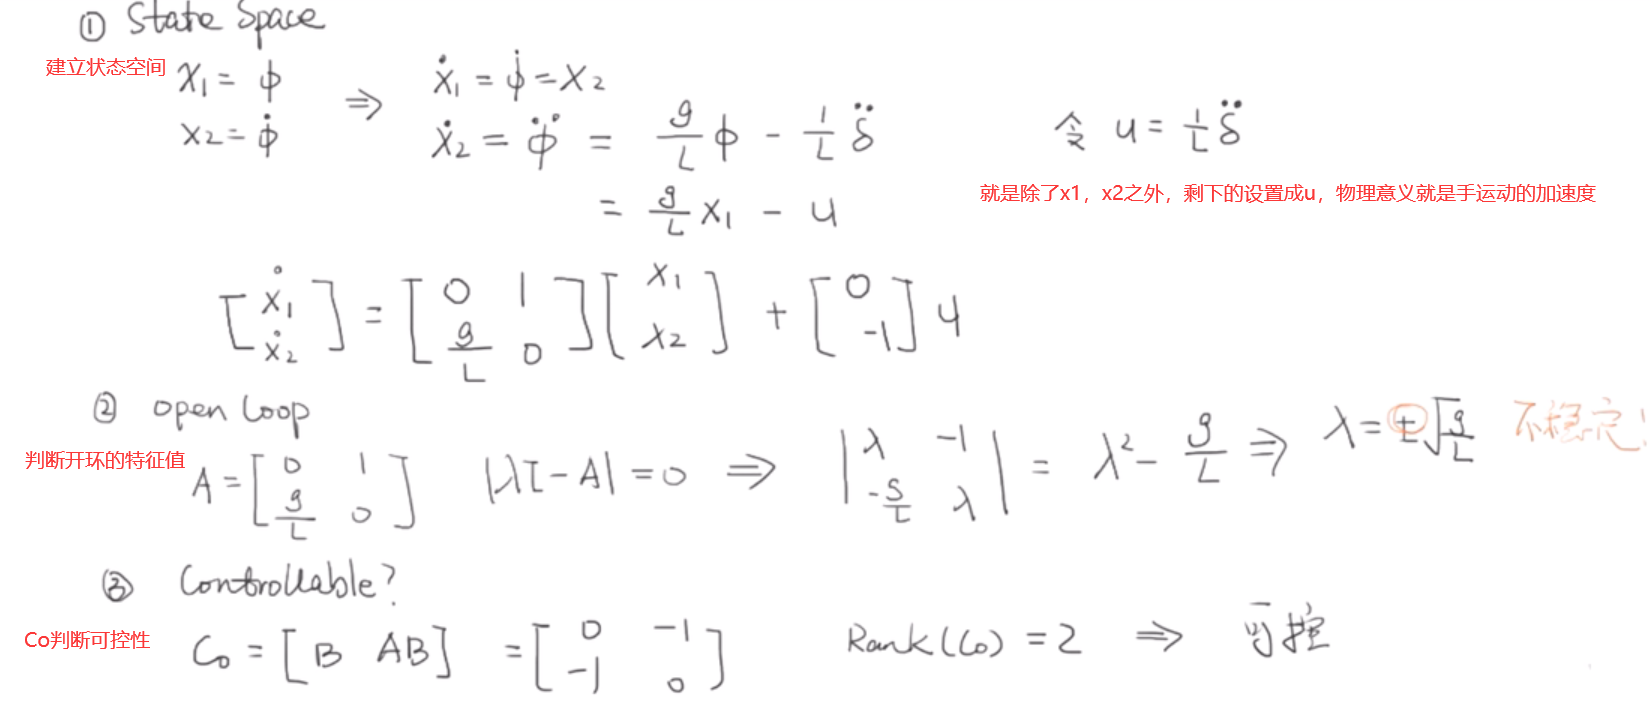 ① State Space
建立状态空间
x₁ = ϕ ⇒ ẋ₁ = ϕ̇ = x₂
x₂ = ϕ̇ ẋ₂ = ϕ̈ = g/L ϕ - 1/L δ̈ 令 u = 1/L δ̈
就是除了x1，x2之外，剩下的设置成u，物理意义就是手运动的加速度
= g/L x₁ - u
[ẋ₁ ; ẋ₂] = [0 1 ; g/L 0] [x₁ ; x₂] + [0 ; -1] u
② open loop
判断开环的特征值
A = [0 1 ; g/L 0] |λI - A| = 0 ⇒ |λ -1 ; -g/L λ| = λ² - g/L ⇒ λ = ±√(g/L) 不稳定!
③ Controllable?
Co判断可控性
Co = [B AB] = [0 -1 ; -1 0] Rank(Co) = 2 ⇒ 可控